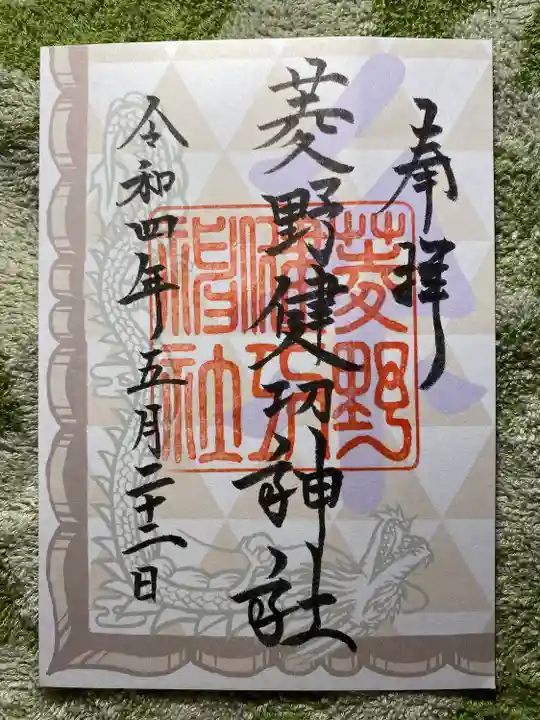 奉拝
菱野健功神社
令和四年五月二十二日
菱野
健功
神社